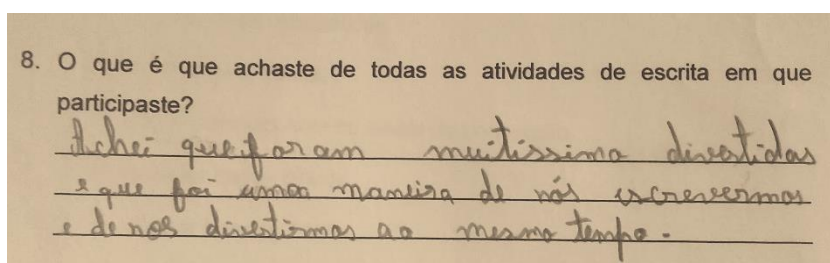 8. O que é que achaste de todas as atividades de escrita em que
participaste?
Achei que foram muitíssimo divertidas
e que foi uma maneira de nós escrevermos
e de nos divertirmos ao mesmo tempo.